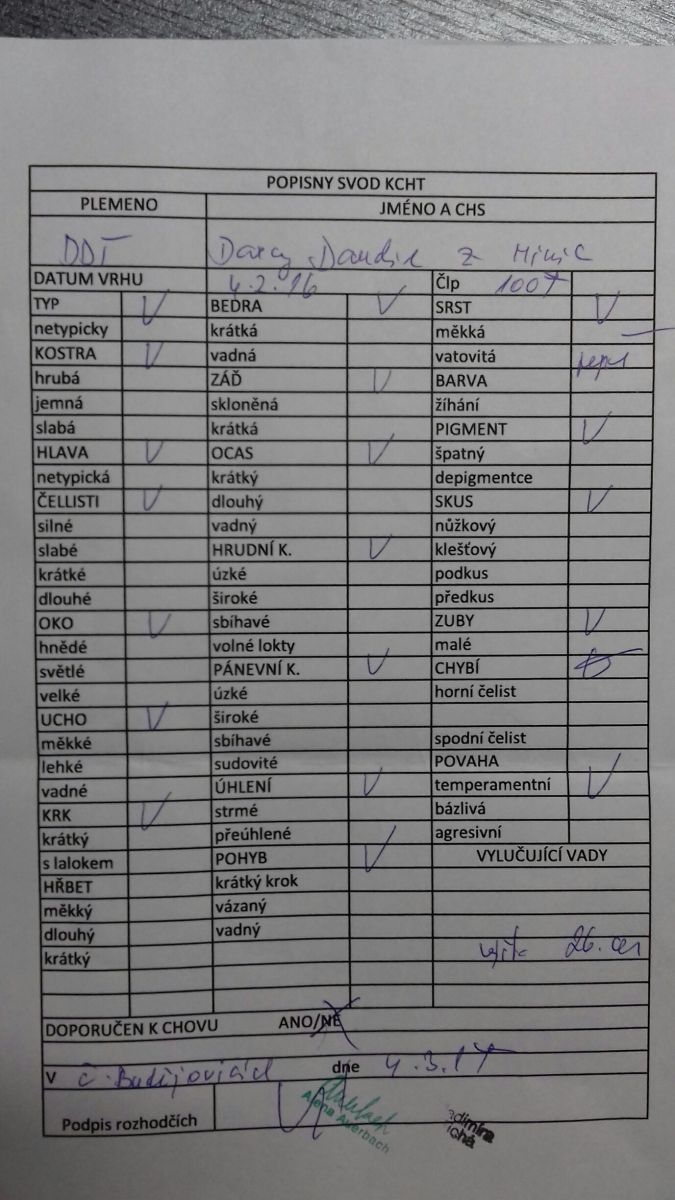 POPISNY SVOD KCHT
PLEMENO JMÉNO A CHS
DDT Darcy Dandie z Mimic
DATUM VRHU 4.2.16 Člp 1007
TYP V BEDRA V SRST V
netypicky krátká měkká
KOSTRA V vadná vatovitá
hrubá ZÁĎ V BARVA
jemná skloněná žíhání
slabá krátká PIGMENT V
HLAVA V OCAS V špatný
netypická krátký depigmentce
ČELLISTI V dlouhý SKUS V
silné vadný nůžkový
slabé HRUDNÍ K. V klešťový
krátké úzké podkus
dlouhé široké předkus
OKO V sbíhavé ZUBY V
hnědé volné lokty malé
světlé PÁNEVNÍ K. V CHYBÍ
velké úzké horní čelist
UCHO V široké
měkké sbíhavé spodní čelist
lehké sudovité POVAHA
vadné ÚHLENÍ V temperamentní V
KRK V strmé bázlivá
krátký přeúhlené agresivní
s lalokem POHYB V VYLUČUJÍCÍ VADY
HŘBET krátký krok
měkký vázaný
dlouhý vadný 26. cm
krátký
DOPORUČEN K CHOVU ANO/NE
V Č. Budějovicích dne 4.3.17
Podpis rozhodčích Alena Auerbach